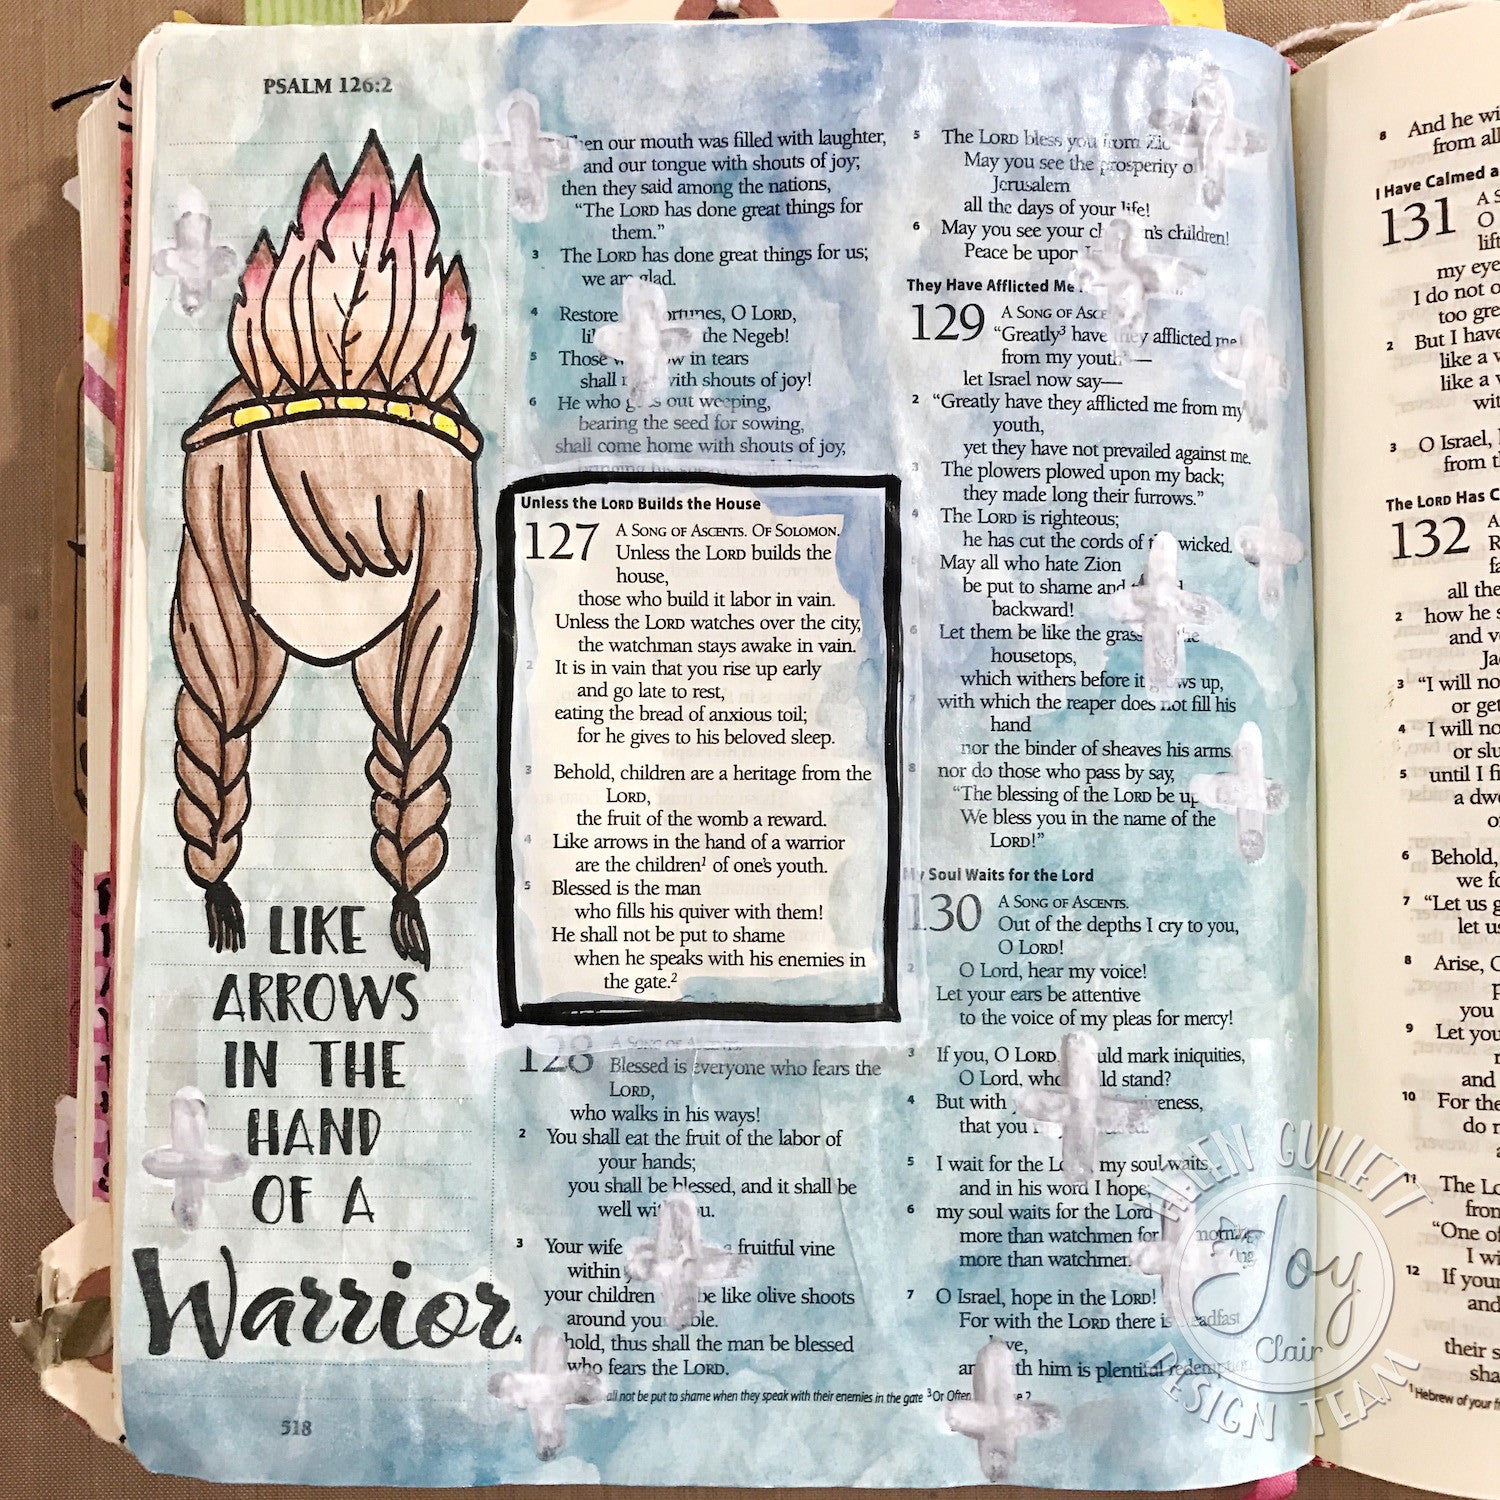 PSALM 126:2
LIKE
ARROWS
IN THE
HAND
OF A
Warrior.
518
Then our mouth was filled with laughter,
and our tongue with shouts of joy;
then they said among the nations,
"The LORD has done great things for
them."
3 The LORD has done great things for us;
we are glad.
4 Restore fortunes, O LORD,
the Negeb!
5 Those in tears
shall with shouts of joy!
6 He who goes out weeping,
bearing the seed for sowing,
shall come home with shouts of joy,
Unless the LORD Builds the House
127 A SONG OF ASCENTS. OF SOLOMON.
Unless the LORD builds the
house,
those who build it labor in vain.
Unless the LORD watches over the city,
the watchman stays awake in vain.
2 It is in vain that you rise up early
and go late to rest,
eating the bread of anxious toil;
for he gives to his beloved sleep.
3 Behold, children are a heritage from the
LORD,
the fruit of the womb a reward.
4 Like arrows in the hand of a warrior
are the children1 of one's youth.
5 Blessed is the man
who fills his quiver with them!
He shall not be put to shame
when he speaks with his enemies in
the gate.2
128 A SONG OF ASCENTS.
Blessed is everyone who fears the
LORD,
who walks in his ways!
2 You shall eat the fruit of the labor of
your hands;
you shall be blessed, and it shall be
well with you.
3 Your wife fruitful vine
within
your children be like olive shoots
around your table.
4 hold, thus shall the man be blessed
who fears the LORD.
all not be put to shame when they speak with their enemies in the gate 3Or Often
5 The LORD bless you from Zion
May you see the prosperity of
Jerusalem
all the days of your life!
6 May you see your children's children!
Peace be upon
They Have Afflicted Me
129 A SONG OF ASCENTS
"Greatly3 have they afflicted me
from my youth"—
let Israel now say—
2 "Greatly have they afflicted me from my
youth,
yet they have not prevailed against me.
3 The plowers plowed upon my back;
they made long their furrows."
4 The LORD is righteous;
he has cut the cords of the wicked.
5 May all who hate Zion
be put to shame and
backward!
6 Let them be like the grass the
housetops,
which withers before it grows up,
7 with which the reaper does not fill his
hand
nor the binder of sheaves his arms.
8 nor do those who pass by say,
"The blessing of the LORD be upon
We bless you in the name of the
LORD!"
My Soul Waits for the Lord
130 A SONG OF ASCENTS.
Out of the depths I cry to you,
O LORD!
2 O Lord, hear my voice!
Let your ears be attentive
to the voice of my pleas for mercy!
3 If you, O LORD, should mark iniquities,
O Lord, who could stand?
4 But with forgiveness,
that you
5 I wait for the LORD, my soul waits,
and in his word I hope;
6 my soul waits for the Lord
more than watchmen for morning,
more than watchmen
7 O Israel, hope in the LORD!
For with the LORD there is steadfast
love,
and with him is plentiful redemption
8 And he wi
from all
I Have Calmed a
131 A S
O
lift
my eye
I do not o
too gre
2 But I have
like a w
like a w
wit
3 O Israel,
from t
The LORD Has C
132 A
R
fa
all the
2 how he s
and v
Ja
3 "I will no
or get
4 I will no
or slu
5 until I fi
a dw
o
6 Behold,
we fo
7 "Let us g
let us
8 Arise, O
p
you
9 Let you
and
10 For the
do n
11 The Lo
from
"One of
I wi
12 If your
and
their s
sha
1Hebrew of your f
KAREN GULLETT
Joy
Clair
DESIGN TEAM